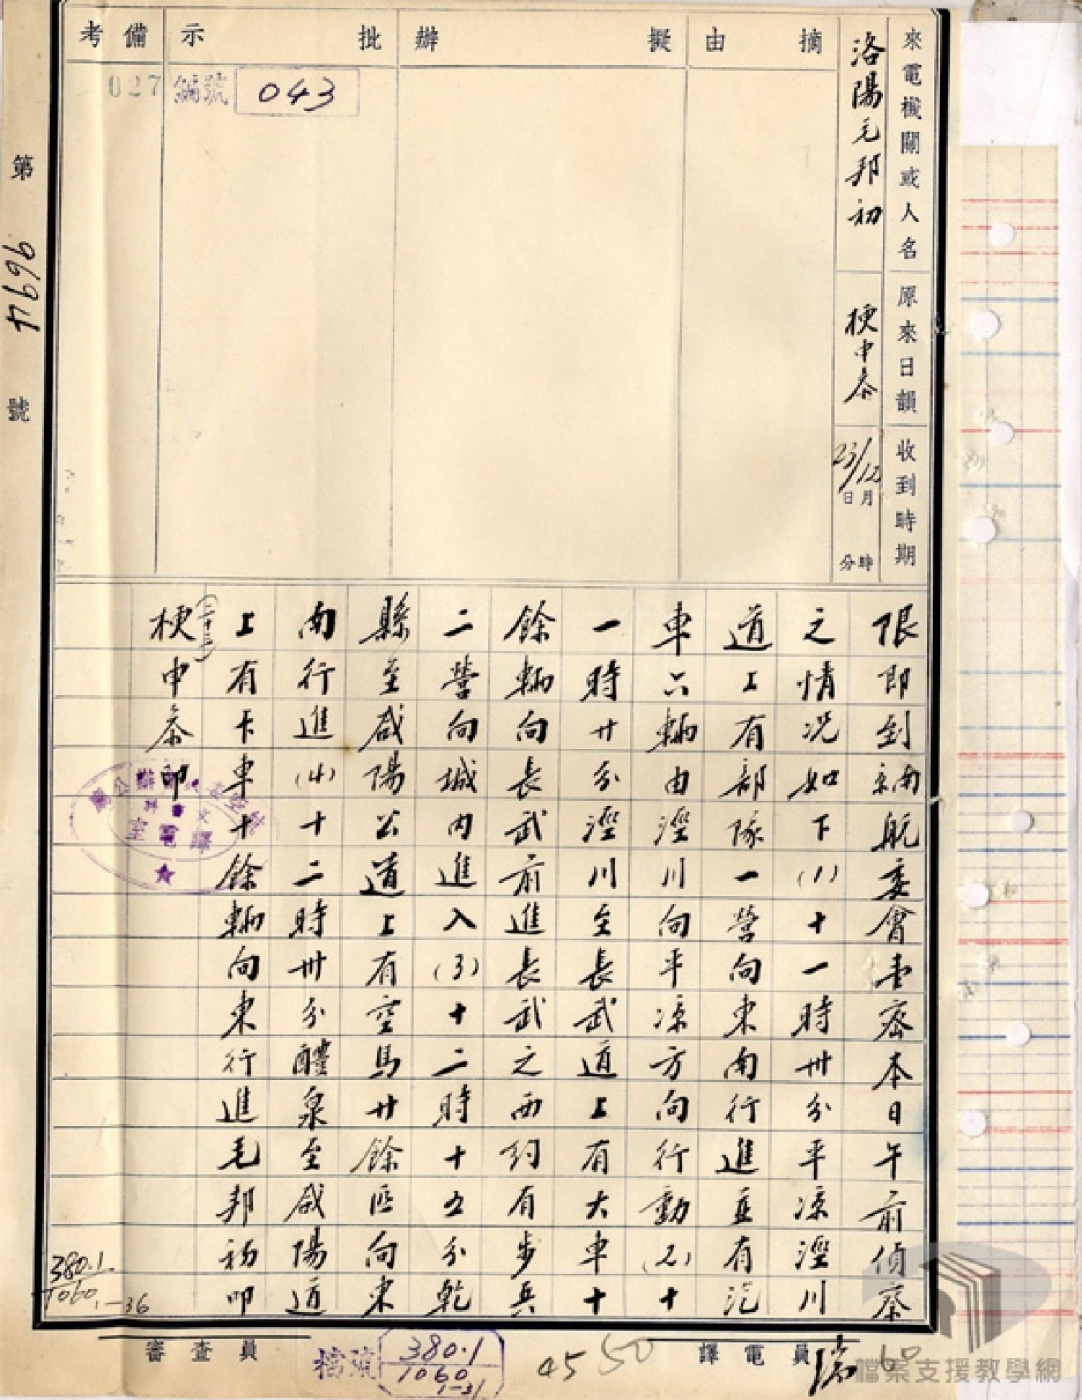 來電機關或人名
洛陽毛邦初
原來日韻
梗申叅
收到時期
23/12
日月
分時
摘由
擬辦
批示
編號 043
備考
027
第 47696 號
限即到京航委會密本日午前偵察
之情況如下(1)十一時卅分平涼涇川
道上有部隊一營向東南行進並有汽
車六輛由涇川向平涼方向行動(2)十
一時廿分涇川至長武道上有大車十
餘輛向長武前進長武之西約有步兵
二營向城內進入(3)十二時十五分乾
縣至咸陽公道上有空馬廿餘匹向東
南行進(4)十二時卅分醴泉至咸陽道
上有卡車十餘輛向東行進毛邦初叩
梗(二十三)申叅印
譯電室
380.1
1060
1-36
審查員
檔號 380.1
1060
1-31
45 50
譯電員
60
檔案支援教學網